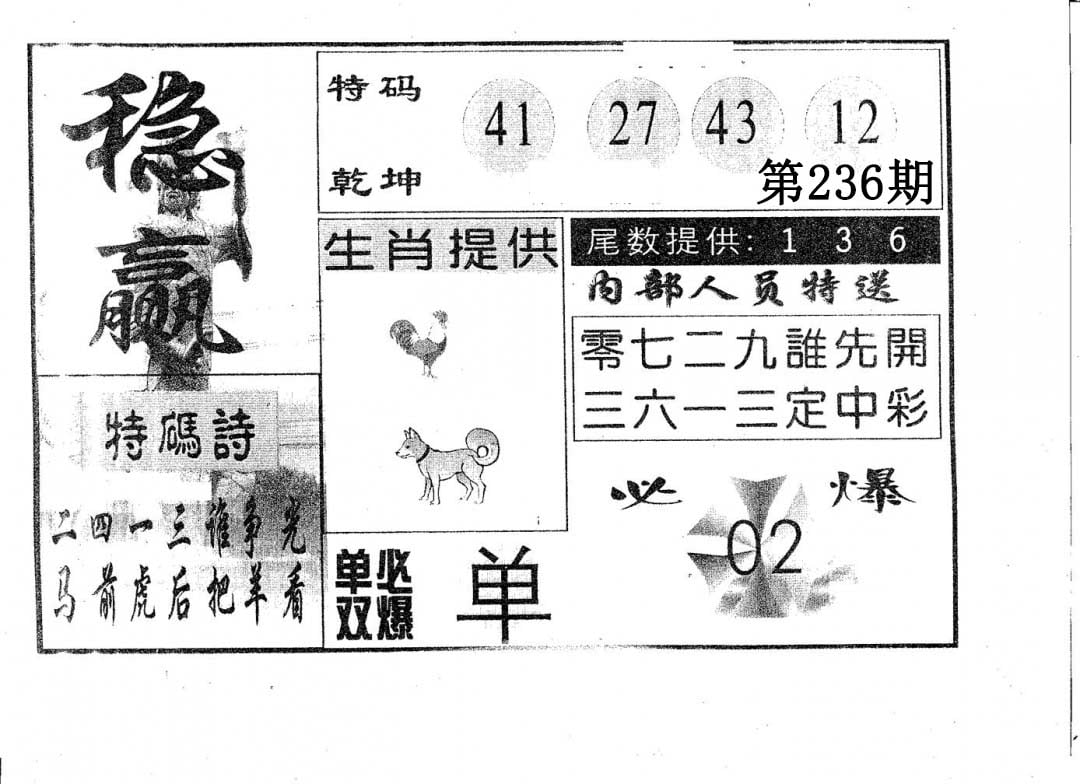 稳赢
特码
41 27 43 12
乾坤
第236期
生肖提供
尾数提供: 1 3 6
内部人员特送
零七二九誰先開
三六一三定中彩
特碼詩
二四一三谁争光
马前虎后把羊看
必爆
02
单必
双爆
单